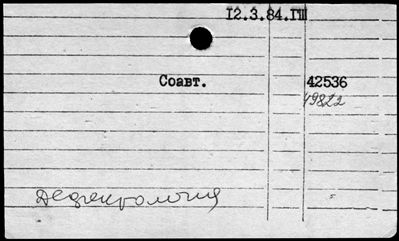 12.3.84.ГШ
Соавт.
42536
49822
Дефектология